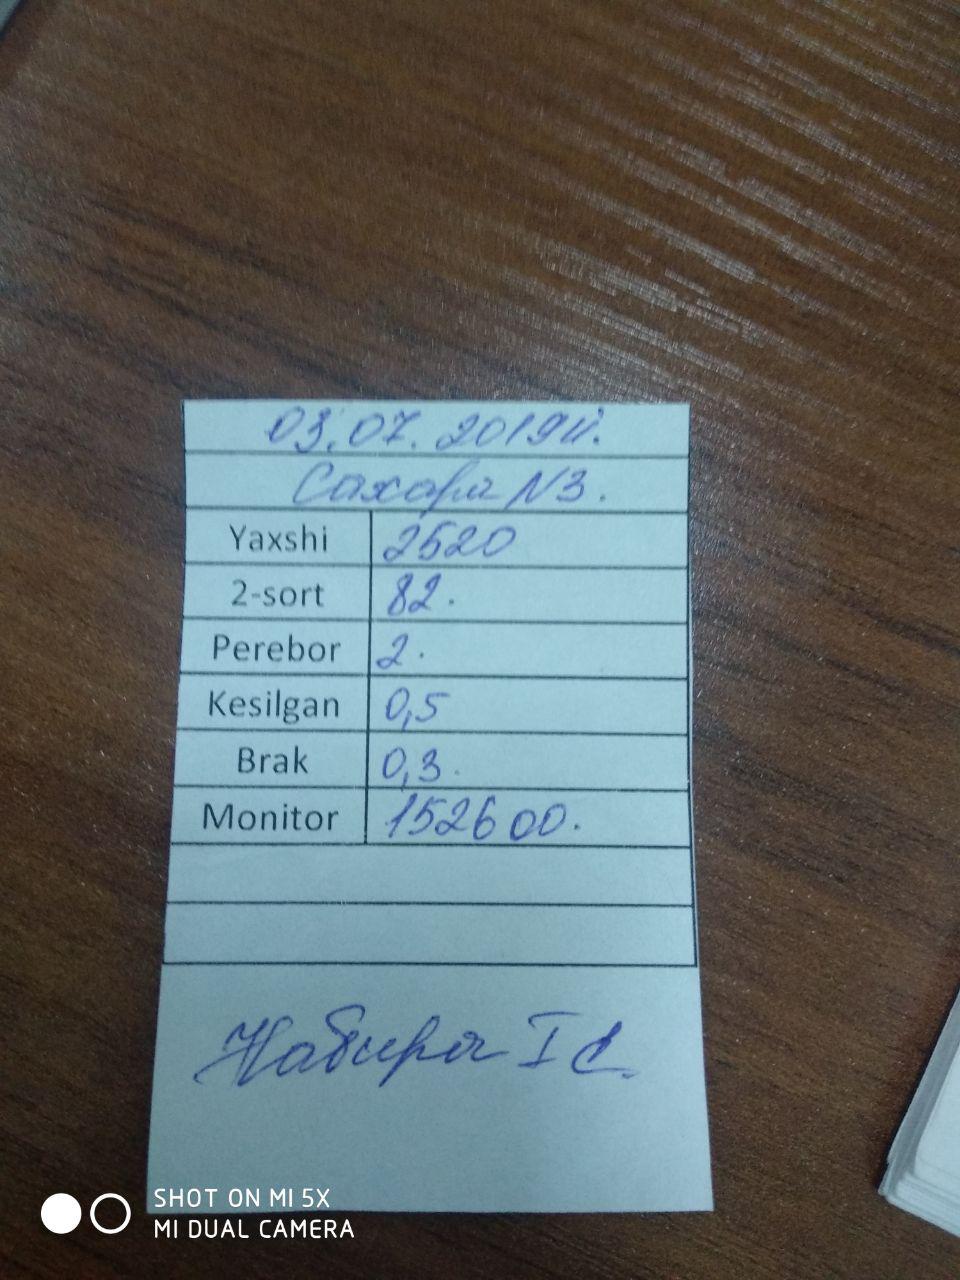 03.07.2019й.
Сахара N3.
Yaxshi 2520
2-sort 82.
Perebor 2.
Kesilgan 0,5
Brak 0,3.
Monitor 152600.
Набира I с.
SHOT ON MI 5X
MI DUAL CAMERA